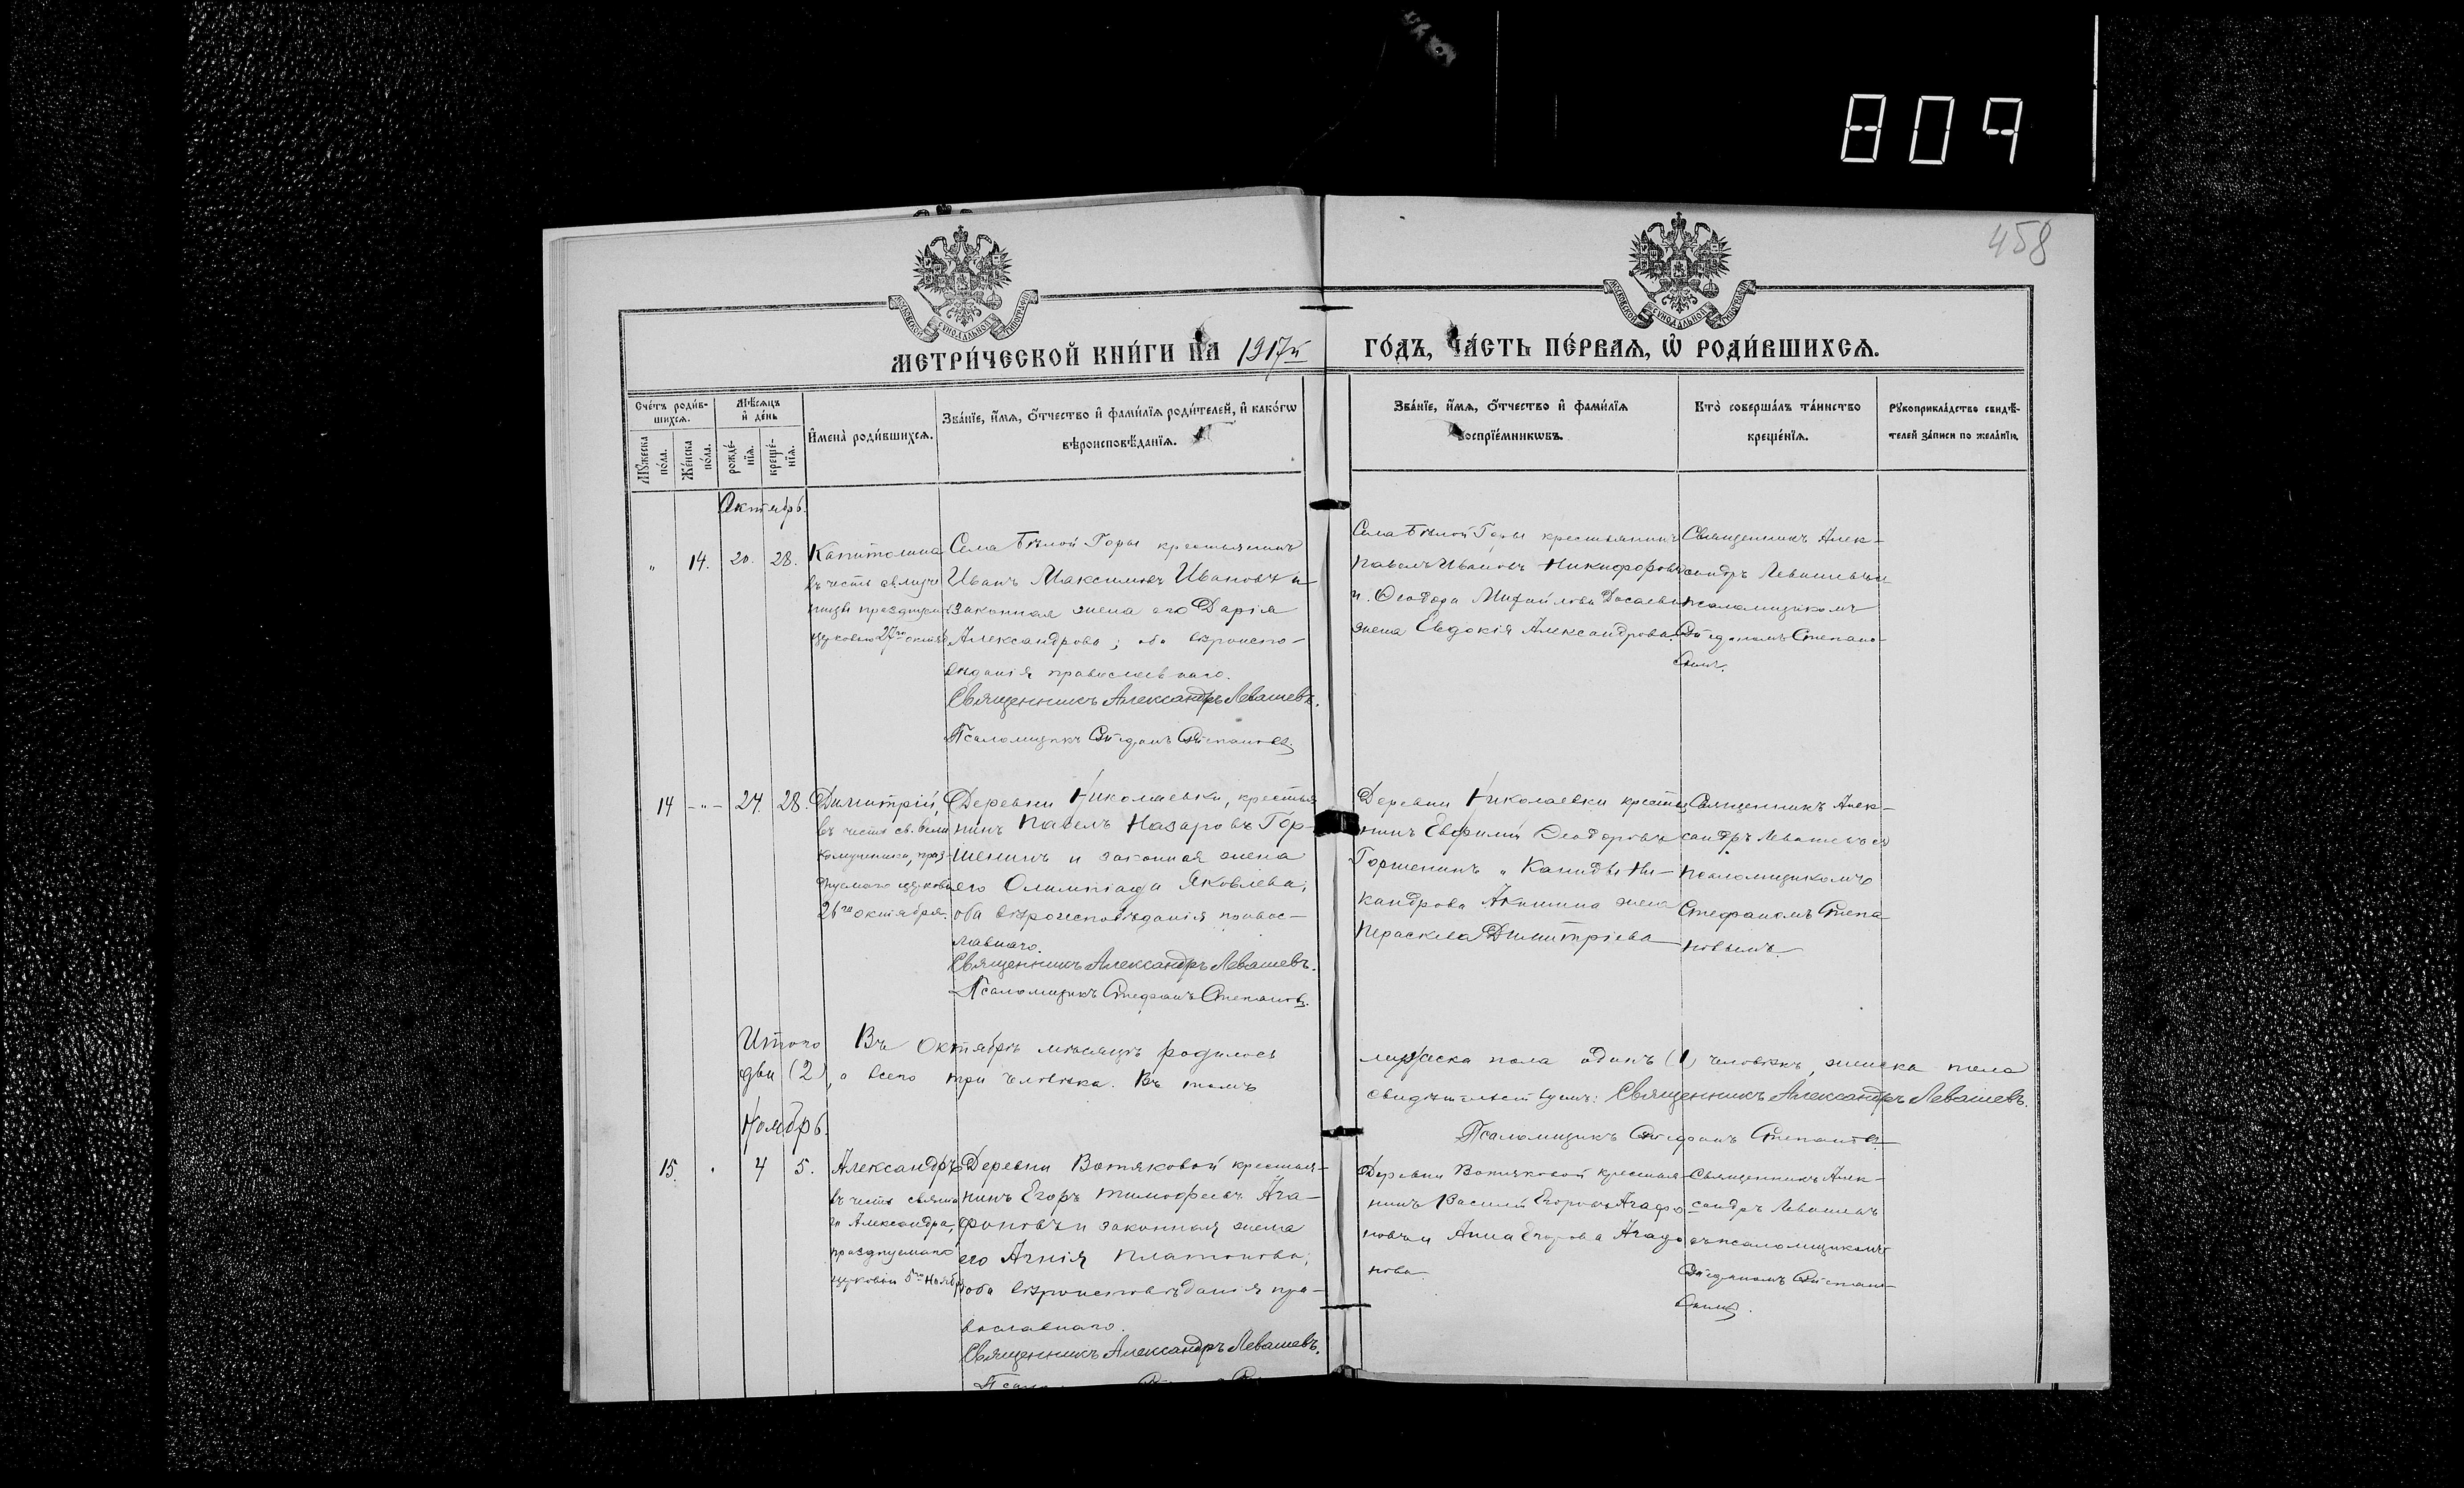 809
458
МЕТРИ́ЧЕСКОЙ КНИ́ГИ НА 1917й ГО́ДЪ, ЧА́СТЬ ПЕ́РВАѦ, Ѡ҆ РОДИ́ВШИХСѦ.
Сче́тъ роди́в-
шихсѧ.
Мꙋ́жеска по́ла.
Же́нска по́ла.
Мѣ́сѧцъ и҆ де́нь
рожде́-
нїѧ.
креще́-
нїѧ.
И҆мена̀ роди́вшихсѧ.
Зва́нїе, и҆́мѧ, ѻ҆́тчество и҆ фами́лїѧ роди́телей, и҆ како́гѡ
вѣроисповѣ́данїѧ.
Зва́нїе, и҆́мѧ, ѻ҆́тчество и҆ фами́лїѧ
воспрїе́мникѡвъ.
Кто̀ соверша́лъ та́инство
креще́нїѧ.
Рꙋкоприкла́дство свидѣ́-
телей за́писи по жела́нїю.
Октябрь.
" 14. 20. 28.
Капитолина
въ честь св. мучи
ницы празднуем
церковью 27го октяб
Села Бѣлой Горы крестьянинъ
Иванъ Максимовъ Ивановъ и
законная жена его Дарія
Александрова; оба вѣроиспо-
вѣданія православнаго.
Священникъ Александръ Левашевъ.
Псаломщикъ Стефанъ Степановъ.
Села Бѣлой Горы крестьянинъ
Павелъ Ивановъ Никифоровъ
и Ѳеодора Михайлова жена Евдокія Александрова.
Священникъ Алек-
сандръ Левашевъ
псаломщикомъ
Стефаномъ Степано-
вымъ.
14 -"- 24. 28.
Димитрій,
въ честь св. вели
комученика, праз-
днуемаго церковью
26го октября.
Деревни Николаевки, крестья
нинъ Павелъ Назаровъ Гор-
шенинъ и законная жена
его Олимпіада Яковлева;
оба вѣроисповѣданія правос-
лавнаго.
Священникъ Александръ Левашевъ.
Псаломщикъ Стефанъ Степановъ.
Деревни Николаевки крестья
нинъ Евфимій Ѳеодоровъ
Горшенинъ и Ни-
кандрова жена
Параскева Димитріева
Священникъ Алек-
сандръ Левашевъ съ
псаломщикомъ
Стефаномъ Степа-
новымъ.
Итого Въ Октябрѣ мѣсяцѣ родилось мужеска пола одинъ (1) человѣкъ, женска пола
два (2), а всего три человѣка. Въ томъ свидѣтельствуемъ: Священникъ Александръ Левашевъ.
Псаломщикъ Стефанъ Степановъ
Ноябрь.
15. " 4 5.
Александръ
въ честь свята
го Александра,
празднуемаго
церковью 5го Ноября
Деревни Вотяковой крестья-
нинъ Егоръ Тимофеевъ Ага-
фоновъ и законная жена
его Агнія Платонова;
оба вѣроисповѣданія пра-
вославнаго.
Священникъ Александръ Левашевъ.
Деревни Вотяковой крестья-
нинъ Василій Егоровъ Агафо-
новъ и Анна Егорова Агафо-
нова.
Священникъ Алек-
сандръ Левашевъ
съ псаломщикомъ
Стефаномъ Степано-
вымъ.